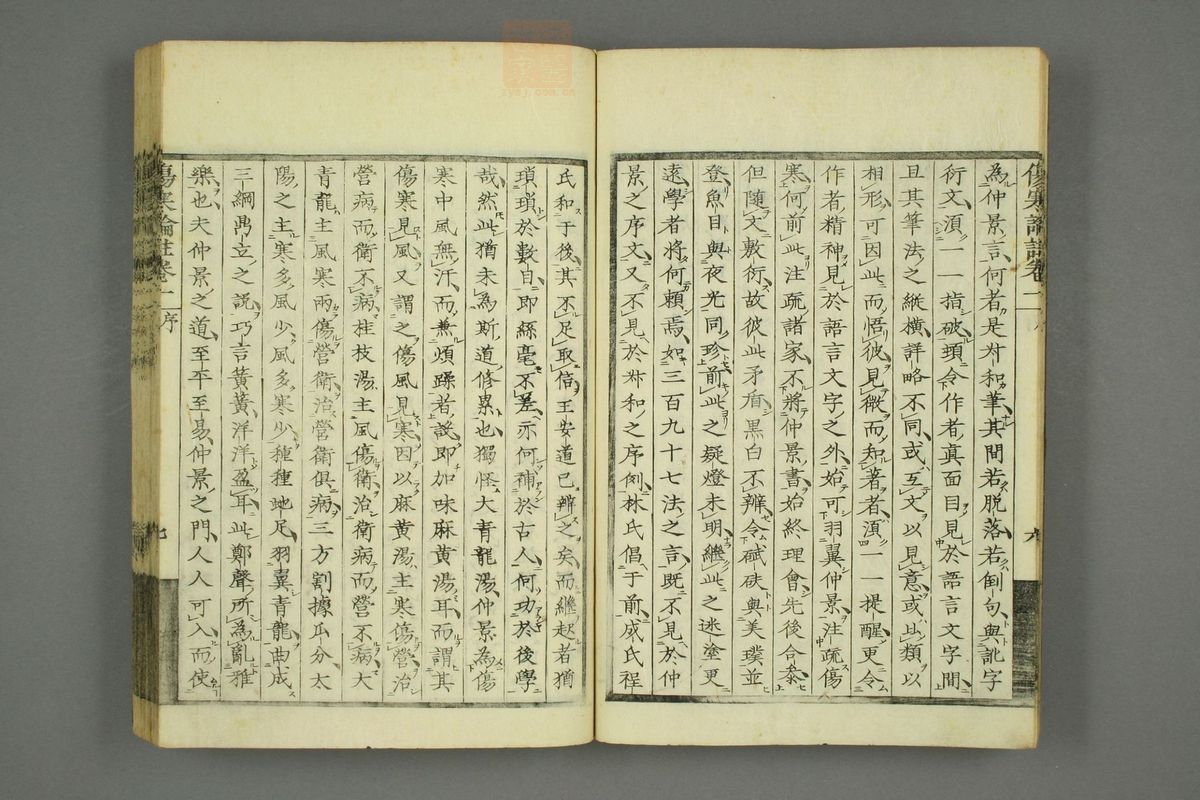 傷寒論註卷二 序
為仲景言何者是叔和筆其間若脫落若倒句與訛字
衍文須一一指破頭令作者真面目見於語言文字間
且其筆法之縱橫詳略不同或互文以見意或比類以
相形可因此而悟彼見微而知著者須一一提醒更令
作者精神見於語言文字之外始可羽翼仲景注疏傷
寒何前此注疏諸家不將仲景書始終理會先後合叅
但隨文敷衍故彼此矛盾黑白不辨令碔砆與美璞並
登魚目與夜光同珍前此之疑燈未明繼此之迷塗更
遠學者將何賴焉如三百九十七法之言既不見於仲
景之序文又不見於叔和之序例林氏倡于前成氏程
氏和于後其不足取信王安道已辨之矣而繼起者猶
瑣瑣於數目即絲毫不差亦何補於古人何功於後學
哉然此猶未為斯道備累也獨怪大青龍湯仲景為傷
寒中風無汗而兼煩躁者設即加味麻黃湯耳而謂其
傷寒見風又謂之傷風見寒因以麻黃湯主寒傷營治
營病而衛不病桂枝湯主風傷衛治衛病而營不病大
青龍主風寒兩傷營衛治營衛俱病三方割據瓜分太
陽之主寒多風少風多寒少種種蛇足羽翼青龍曲成
三綱鼎立之說巧言簧簧洋洋盈耳此鄭聲所為亂雅
樂也夫仲景之道至平至易仲景之門人人可入而使
傷寒論註卷二 序
七
zysj.com.cn